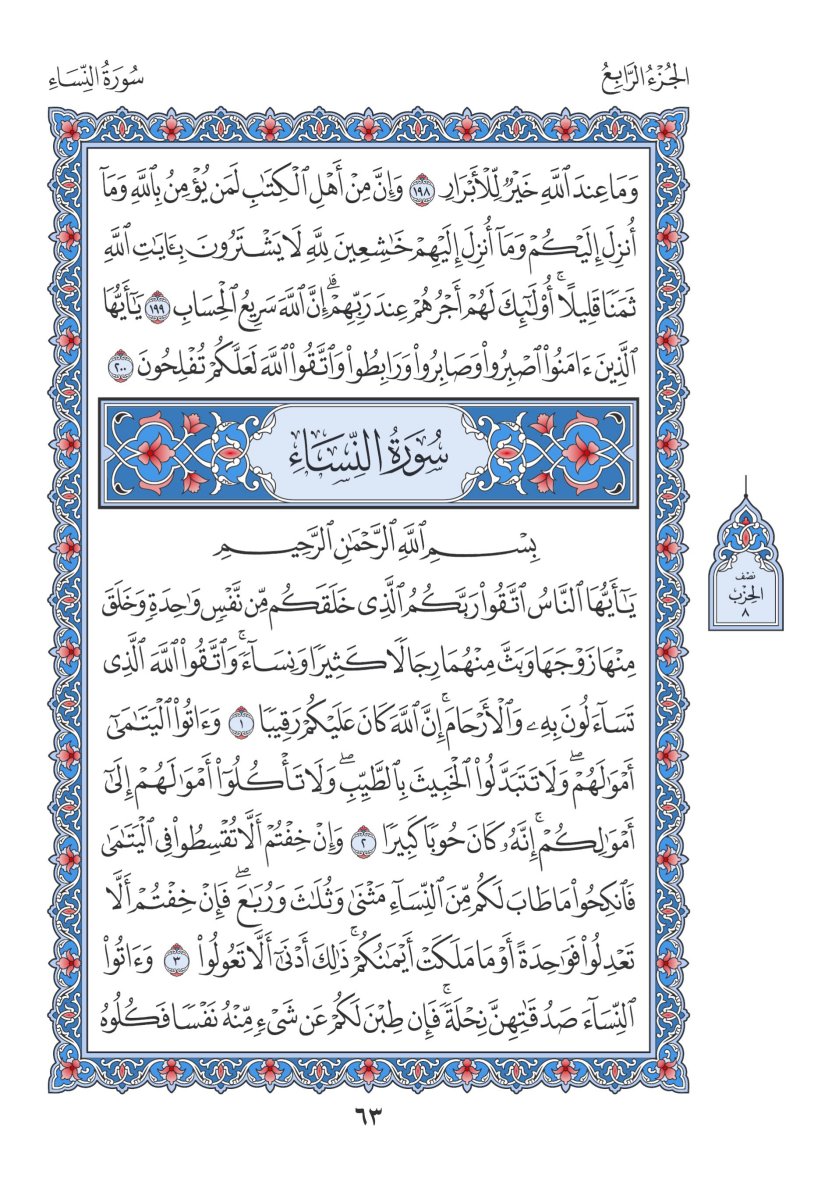 الجُزْءُ الرَّابِعُ
سُورَةُ النِّسَاءِ
وَمَا عِندَ ٱللَّهِ خَيْرٌ لِّلْأَبْرَارِ ١٩٨ وَإِنَّ مِنْ أَهْلِ ٱلْكِتَٰبِ لَمَن يُؤْمِنُ بِٱللَّهِ وَمَآ
أُنزِلَ إِلَيْكُمْ وَمَآ أُنزِلَ إِلَيْهِمْ خَٰشِعِينَ لِلَّهِ لَا يَشْتَرُونَ بِـَٔايَٰتِ ٱللَّهِ
ثَمَنًا قَلِيلًا ۚ أُوْلَٰٓئِكَ لَهُمْ أَجْرُهُمْ عِندَ رَبِّهِمْ ۗ إِنَّ ٱللَّهَ سَرِيعُ ٱلْحِسَابِ ١٩٩ يَٰٓأَيُّهَا
ٱلَّذِينَ ءَامَنُواْ ٱصْبِرُواْ وَصَابِرُواْ وَرَابِطُواْ وَٱتَّقُواْ ٱللَّهَ لَعَلَّكُمْ تُفْلِحُونَ ٢٠٠
سُورَةُ النِّسَاءِ
بِسْمِ ٱللَّهِ ٱلرَّحْمَٰنِ ٱلرَّحِيمِ
يَٰٓأَيُّهَا ٱلنَّاسُ ٱتَّقُواْ رَبَّكُمُ ٱلَّذِى خَلَقَكُم مِّن نَّفْسٍ وَٰحِدَةٍ وَخَلَقَ
مِنْهَا زَوْجَهَا وَبَثَّ مِنْهُمَا رِجَالًا كَثِيرًا وَنِسَآءً ۚ وَٱتَّقُواْ ٱللَّهَ ٱلَّذِى
تَسَآءَلُونَ بِهِۦ وَٱلْأَرْحَامَ ۚ إِنَّ ٱللَّهَ كَانَ عَلَيْكُمْ رَقِيبًا ١ وَءَاتُواْ ٱلْيَتَٰمَىٰٓ
أَمْوَٰلَهُمْ ۖ وَلَا تَتَبَدَّلُواْ ٱلْخَبِيثَ بِٱلطَّيِّبِ ۖ وَلَا تَأْكُلُوٓاْ أَمْوَٰلَهُمْ إِلَىٰٓ
أَمْوَٰلِكُمْ ۚ إِنَّهُۥ كَانَ حُوبًا كَبِيرًا ٢ وَإِنْ خِفْتُمْ أَلَّا تُقْسِطُواْ فِى ٱلْيَتَٰمَىٰ
فَٱنكِحُواْ مَا طَابَ لَكُم مِّنَ ٱلنِّسَآءِ مَثْنَىٰ وَثُلَٰثَ وَرُبَٰعَ ۖ فَإِنْ خِفْتُمْ أَلَّا
تَعْدِلُواْ فَوَٰحِدَةً أَوْ مَا مَلَكَتْ أَيْمَٰنُكُمْ ۚ ذَٰلِكَ أَدْنَىٰٓ أَلَّا تَعُولُواْ ٣ وَءَاتُواْ
ٱلنِّسَآءَ صَدُقَٰتِهِنَّ نِحْلَةً ۚ فَإِن طِبْنَ لَكُمْ عَن شَىْءٍ مِّنْهُ نَفْسًا فَكُلُوهُ
نصْف
الحِزْب
٨
٦٣